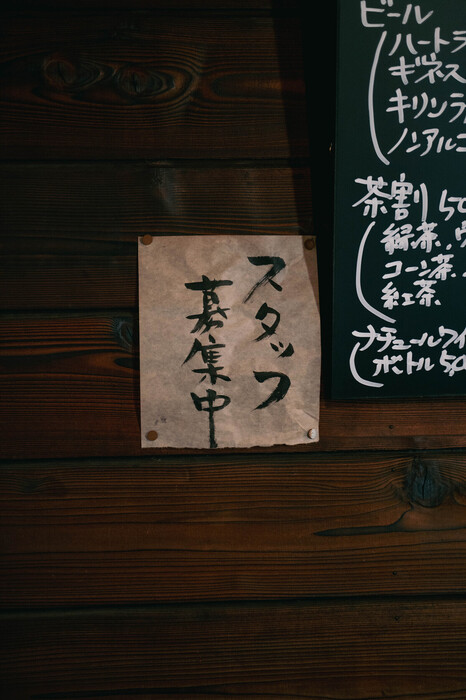 スタッフ
募集中
ビール
ハートラ
ギネス
キリンラ
ノンアルコ
茶割り
緑茶、ウ
コーン茶、
紅茶
ナチュールワイ
ボトル